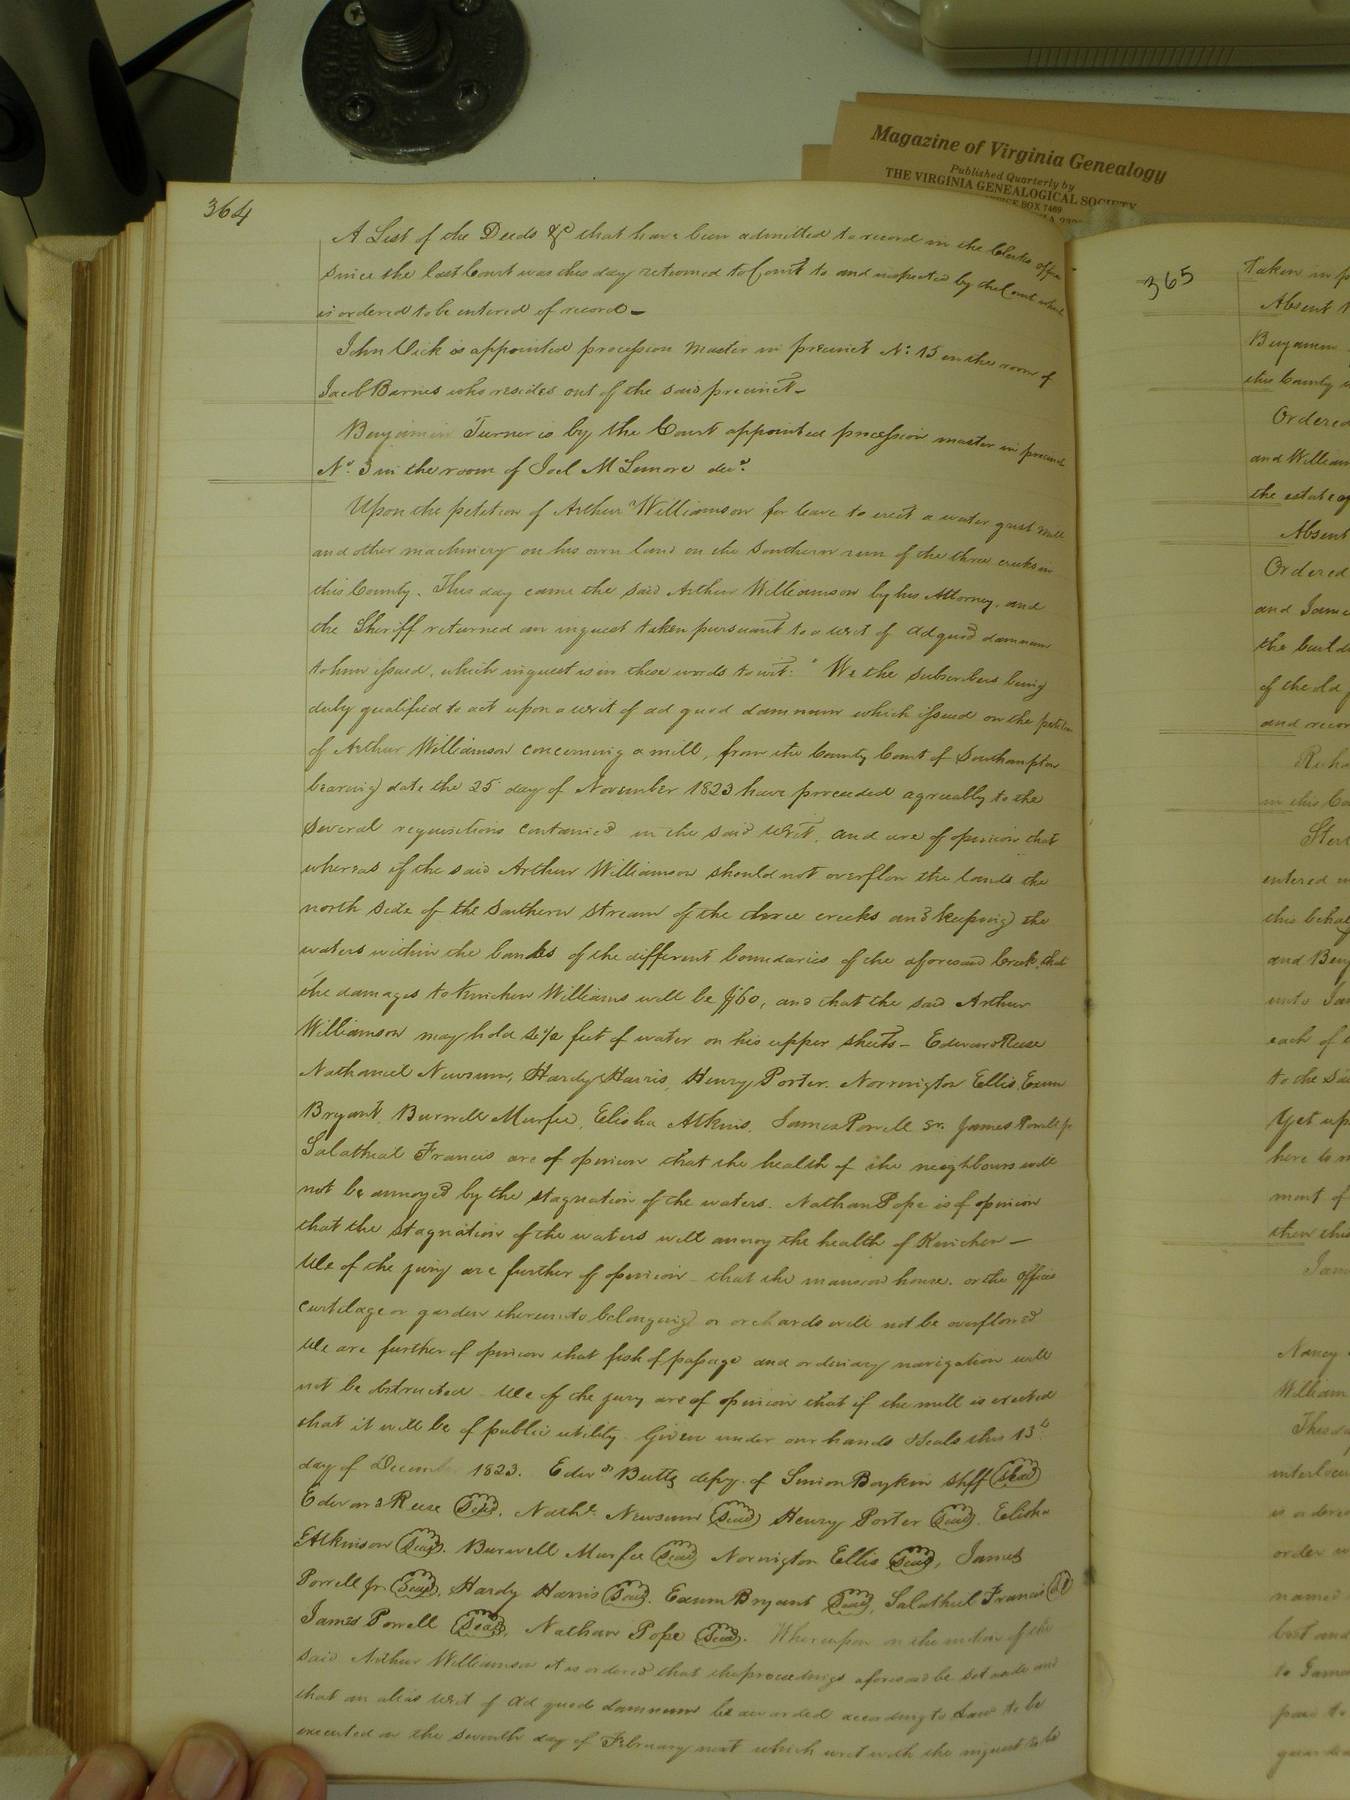 Magazine of Virginia Genealogy
Published Quarterly by
THE VIRGINIA GENEALOGICAL SOCIETY
OFFICE BOX 7469
364
A List of the Deeds &c that have been admitted to record in the Clerks office
since the last Court was this day returned to Court to and inspected by the Court which
is ordered to be entered of record –
John Vick is appointed procession master in precinct No. 15 in the room of
Jacob Barnes who resides out of the said precinct –
Benjamin Turner is by the Court appointed procession master in precinct
No. 3 in the room of Joel McLemore decd.
Upon the petition of Arthur Williamson for leave to erect a water grist mill
and other machinery on his own land on the Southern run of the three creeks in
this County. This day came the said Arthur Williamson by his Attorney, and
the Sheriff returned an inquest taken pursuant to a writ of ad quod damnum
to him issued, which inquest is in these words to wit: "We the subscribers being
duly qualified to act upon a writ of ad quod damnum which issued on the petition
of Arthur Williamson concerning a mill, from the County Court of Southampton
bearing date the 25 day of November 1823 have proceeded agreeably to the
several requisitions contained in the said writ, and are of opinion that
whereas if the said Arthur Williamson should not overflow the lands the
north side of the Southern stream of the three creeks and keeping the
waters within the banks of the different boundaries of the aforesaid Creek, that
the damages to Kinchen Williams will be $60, and that the said Arthur
Williamson may hold feet of water on his upper sheets – Edward Reese
Nathaniel Newsum, Hardy Harris, Henry Porter, Norrington Ellis, Exum
Bryant, Burwell Murfee, Elisha Atkins, James Powell Sr. James Powell jr
Salathiel Francis are of opinion that the health of the neighbours will
not be annoyed by the stagnation of the waters. Nathan Pope is of opinion
that the stagnation of the waters will annoy the health of Kinchen –
We of the jury are further of opinion that the mansion house. or the offices
curtilage or garden thereunto belonging or orchards will not be overflowed
We are further of opinion that fish of passage and ordinary navigation will
not be obstructed We of the jury are of opinion that if the mill is erected
that it will be of public utility. Given under our hands & seals this 13th
day of December 1823. Edwd Butts depy. of Simon Boykin Shff (Seal)
Edward Reese (Seal). Nathl. Newsum (Seal) Henry Porter (Seal). Elisha
Atkinson (Seal). Burwell Murfee (Seal) Norrington Ellis (Seal), James
Powell jr (Seal), Hardy Harris (Seal). Exum Bryant (Seal), Salathiel Francis
James Powell (Seal), Nathan Pope (Seal). Whereupon on the motion of the
said Arthur Williamson it is ordered that the proceedings aforesaid be set aside and
that an alias writ of ad quod damnum be awarded according to Law to be
executed on the seventh day of February next which writ with the inquest to be
365
Taken in
Absent
Benjamin
this County
Ordered
and William
the estate of
Absent
Ordered
and
the
of the old
and
in this
entered
this behalf
and
unto
each of
to the said
Yet
here to
ment of
then this
Nancy
William
This day
is ordered
order
named
but and
to James
paid to